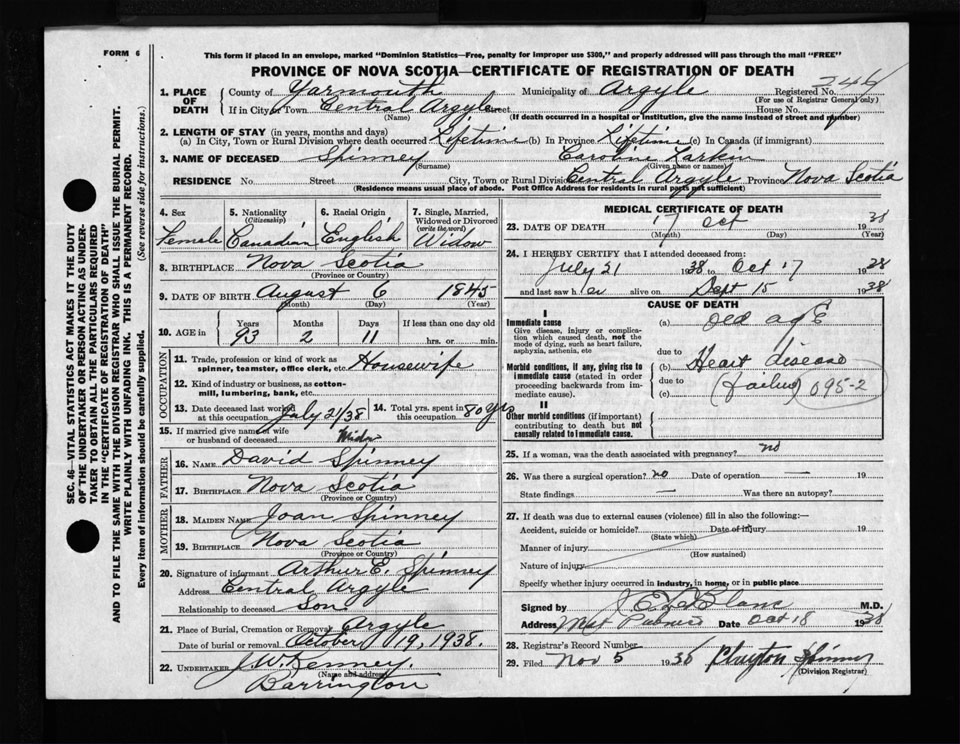 FORM 6
This form if placed in an envelope, marked "Dominion Statistics—Free, penalty for improper use $300," and properly addressed will pass through the mail "FREE"
PROVINCE OF NOVA SCOTIA—CERTIFICATE OF REGISTRATION OF DEATH
1. PLACE OF DEATH County of Yarmouth Municipality of Argyle Registered No.
(For use of Registrar General only)
If in City or Town Central Argyle Street House No.
(Name) (If death occurred in a hospital or institution, give the name instead of street and number)
2. LENGTH OF STAY (in years, months and days)
(a) In City, Town or Rural Division where death occurred Lifetime (b) In Province Lifetime (c) In Canada (if immigrant)
3. NAME OF DECEASED Spinney Caroline Larkin
(Surname) (Given name or names)
RESIDENCE No. Street City, Town or Rural Division Central Argyle Province Nova Scotia
(Residence means usual place of abode. Post Office Address for residents in rural parts not sufficient)
4. Sex Female
5. Nationality (Citizenship) Canadian
6. Racial Origin English
7. Single, Married, Widowed or Divorced (write the word) Widow
8. BIRTHPLACE Nova Scotia
(Province or Country)
9. DATE OF BIRTH August 6 1845
(Month) (Day) (Year)
10. AGE in Years Months Days If less than one day
93 2 11 hrs. or min.
OCCUPATION
11. Trade, profession or kind of work as spinner, teamster, office clerk, etc. Housewife
12. Kind of industry or business, as cotton-mill, lumbering, bank, etc.
13. Date deceased last worked at this occupation July 21/38
14. Total yrs. spent in this occupation 80 yrs
15. If married give name of wife or husband of deceased Widow
FATHER
16. NAME David Spinney
17. BIRTHPLACE Nova Scotia
(Province or Country)
MOTHER
18. MAIDEN NAME Joan Spinney
19. BIRTHPLACE Nova Scotia
(Province or Country)
20. Signature of informant Arthur E. Spinney
Address Central Argyle
Relationship to deceased Son
21. Place of Burial, Cremation or Removal Argyle
Date of burial or removal October 19, 1938.
22. UNDERTAKER J. W. Kenney.
(Name and address)
Barrington
MEDICAL CERTIFICATE OF DEATH
23. DATE OF DEATH 17 Oct 1938
(Month) (Day) (Year)
24. I HEREBY CERTIFY that I attended deceased from:
July 21 1938 to Oct 17 1938
and last saw her alive on Sept 15 1938
CAUSE OF DEATH
I
Immediate cause
Give disease, injury or complication which caused death, not the mode of dying, such as heart failure, asphyxia, asthenia, etc
(a) Old age
due to
Morbid conditions, if any, giving rise to immediate cause (stated in order proceeding backwards from immediate cause).
(b) Heart disease
due to
(c) (failure) 095-2
II
Other morbid conditions (if important) contributing to death but not causally related to immediate cause.
25. If a woman, was the death associated with pregnancy? no
26. Was there a surgical operation? no Date of operation — 19
State findings — Was there an autopsy?
27. If death was due to external causes (violence) fill in also the following:—
Accident, suicide or homicide? Date of injury 19
(State which)
Manner of injury
(How sustained)
Nature of injury
Specify whether injury occurred in industry, in home, or in public place
Signed by J C LeBlanc M.D.
Address West Pubnico Date Oct 18 1938
28. Registrar's Record Number
29. Filed Nov 5 1938 Clayton Spinney
(Division Registrar)
SEC. 46—VITAL STATISTICS ACT MAKES IT THE DUTY
OF THE UNDERTAKER OR PERSON ACTING AS UNDER-
TAKER TO OBTAIN ALL THE PARTICULARS REQUIRED
IN THE "CERTIFICATE OF REGISTRATION OF DEATH"
AND TO FILE THE SAME WITH THE DIVISION REGISTRAR WHO SHALL ISSUE THE BURIAL PERMIT.
WRITE PLAINLY WITH UNFADING INK. THIS IS A PERMANENT RECORD.
Every item of information should be carefully supplied. (See reverse side for instructions.)